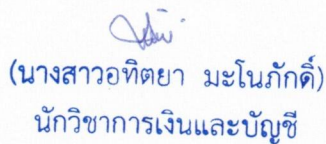 (นางสาวอทิตยา มะโนภักดิ์)
นักวิชาการเงินและบัญชี